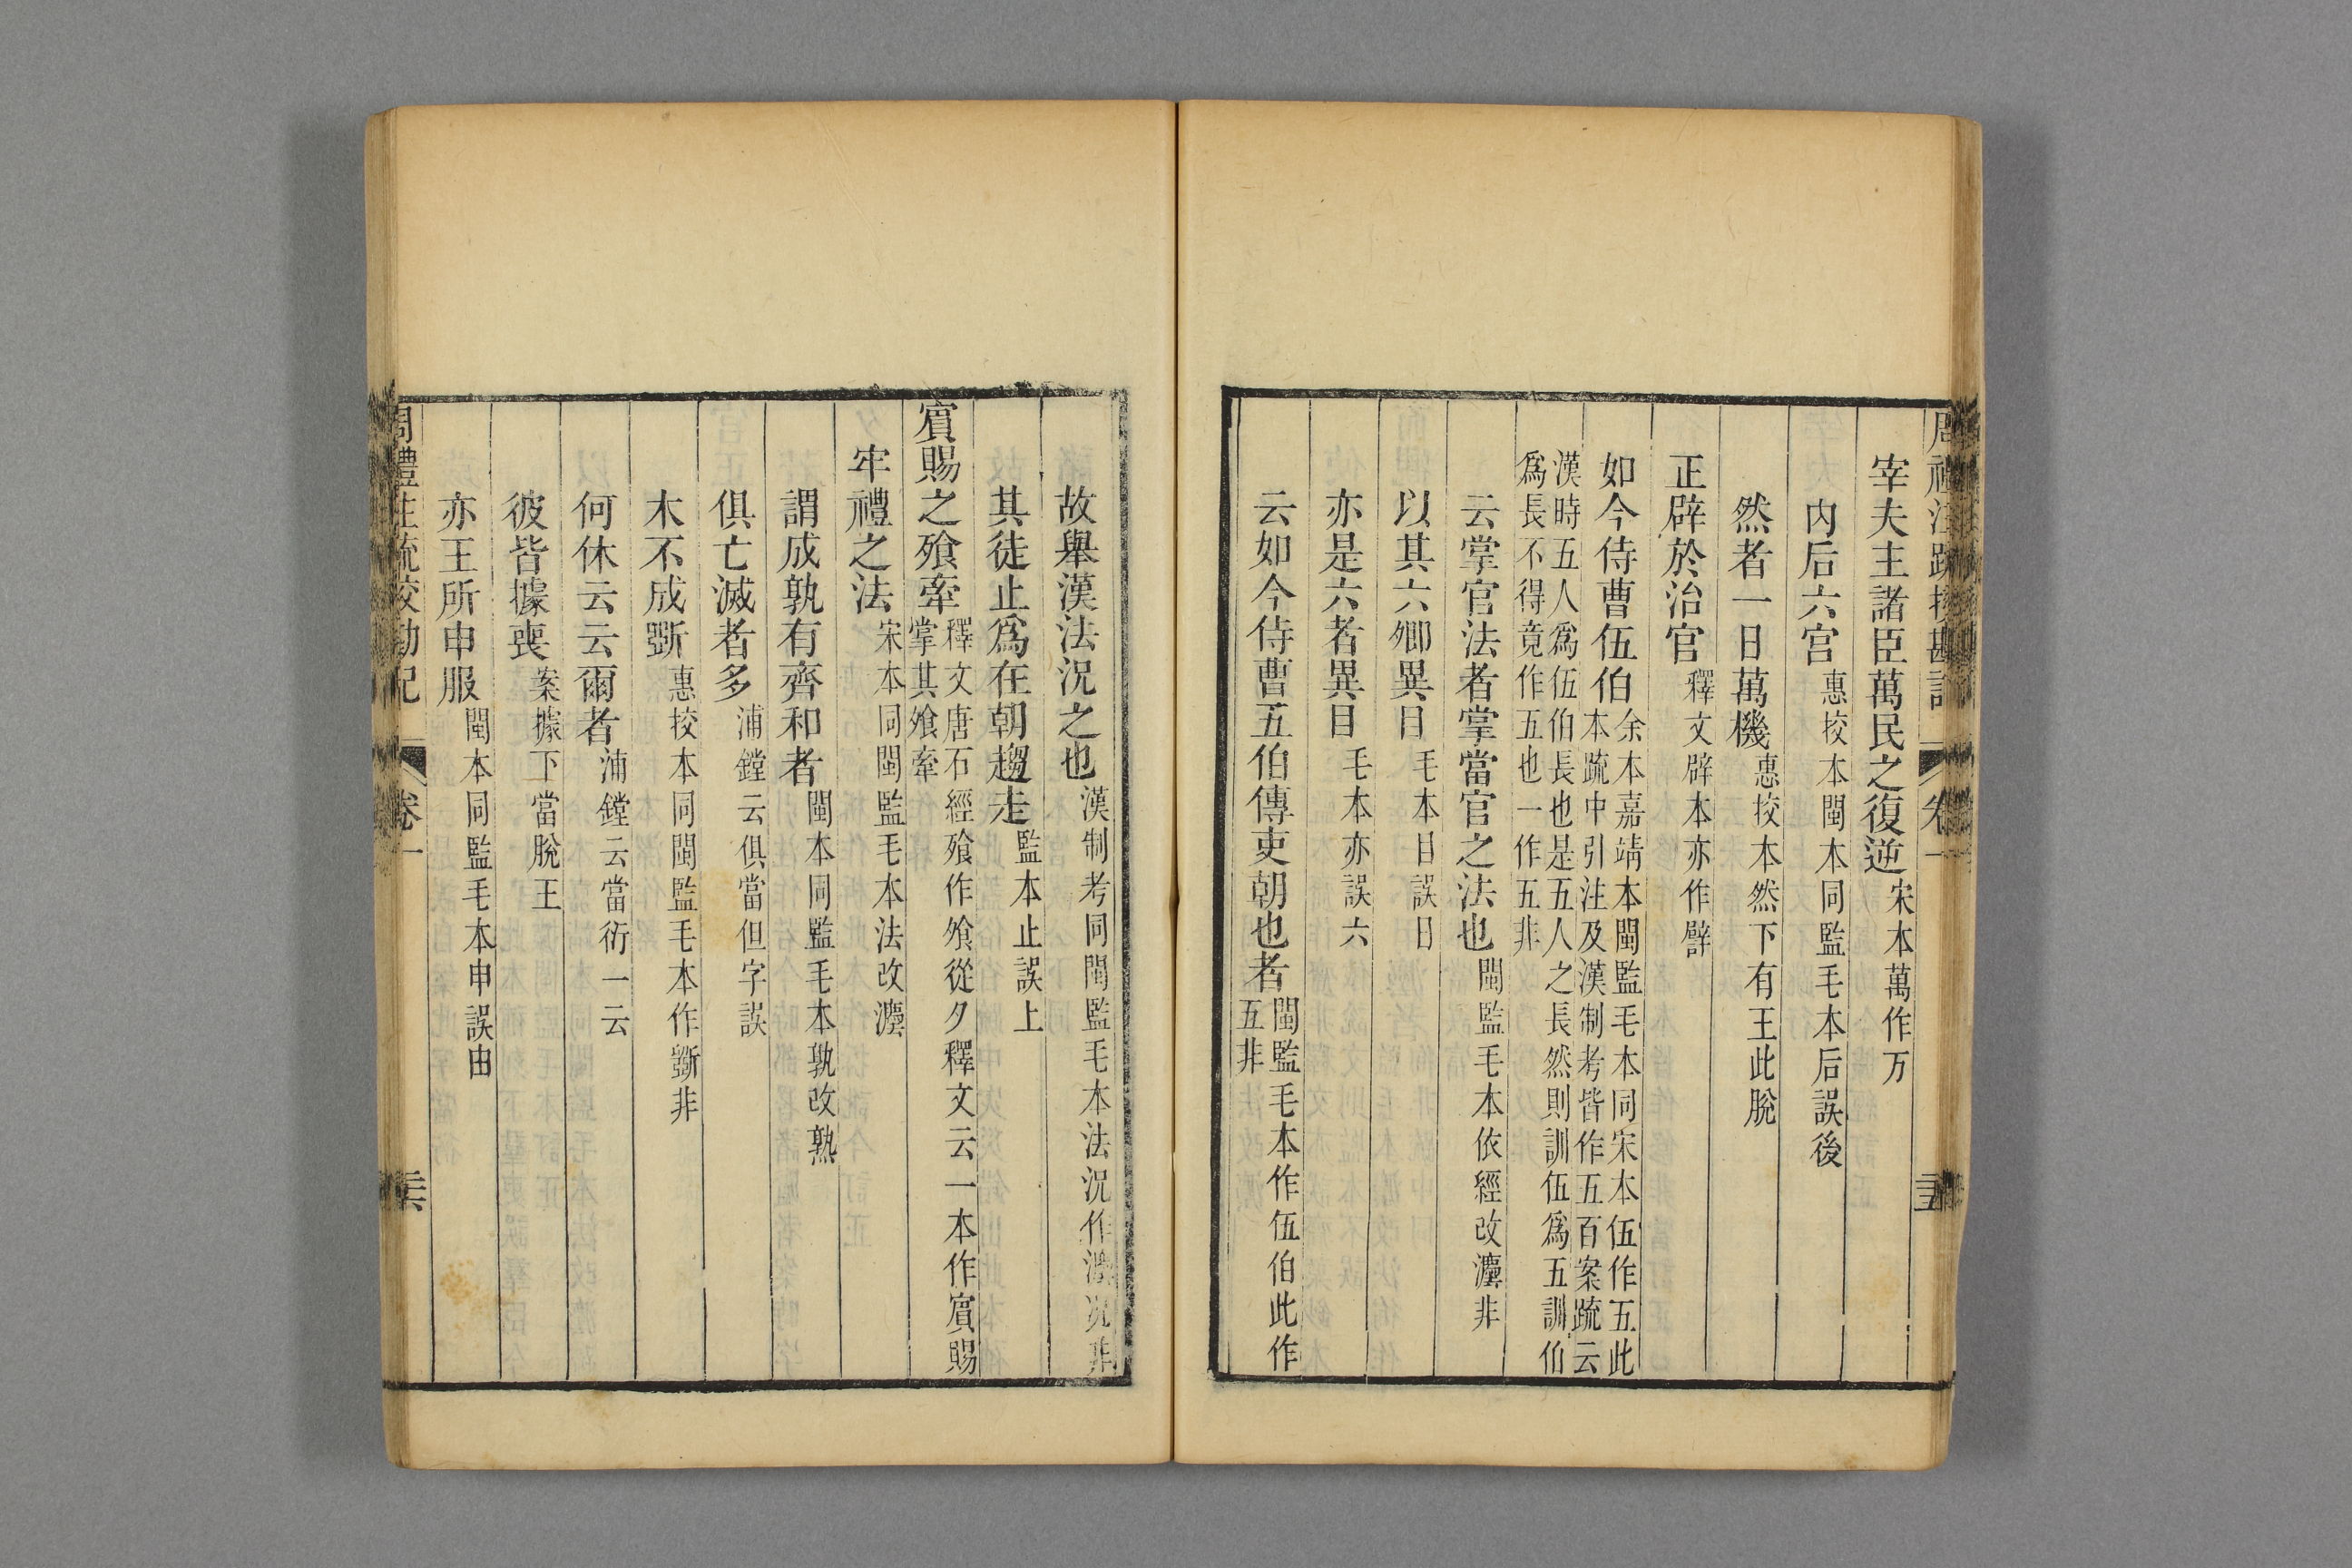 周禮注疏挍勘記 卷一 二十五
宰夫主諸臣萬民之復逆 宋本萬作万
内后六宫 惠挍本閩本同監毛本后誤後
然者一日萬機 惠挍本然下有王此脫
正辟於治官 釋文辟本亦作辥
如今侍曹伍伯 余本嘉靖本閩監毛本同宋本伍作五此
本疏中引注及漢制考皆作五百案疏云
漢時五人爲伍伯長也是五人之長然則訓伍爲五訓伯
爲長不得竟作五也一作五非
云掌官法者掌當官之法也 閩監毛本依經改灋非
以其六卿異日 毛本日誤曰
亦是六者異目 毛本亦誤六
云如今侍曹五伯傳吏朝也者 閩監毛本作伍伯此作
五非
故舉漢法況之也 漢制考同閩監毛本法況作灋况非
其徒止爲在朝趨走 監本止誤上
賔賜之飱牽 釋文唐石經飱作飧從夕釋文云一本作賔賜
掌其飧牽
牢禮之法 宋本同閩監毛本法改灋
謂成孰有齊和者 閩本同監毛本孰改熟
俱亡滅者多 浦鏜云俱當但字誤
木不成斲 惠挍本同閩監毛本作斵非
何休云云爾者 浦鏜云當衍一云
彼皆據喪 案據下當脫王
亦王所申服 閩本同監毛本申誤由
周禮注疏挍勘記 卷一 二十六